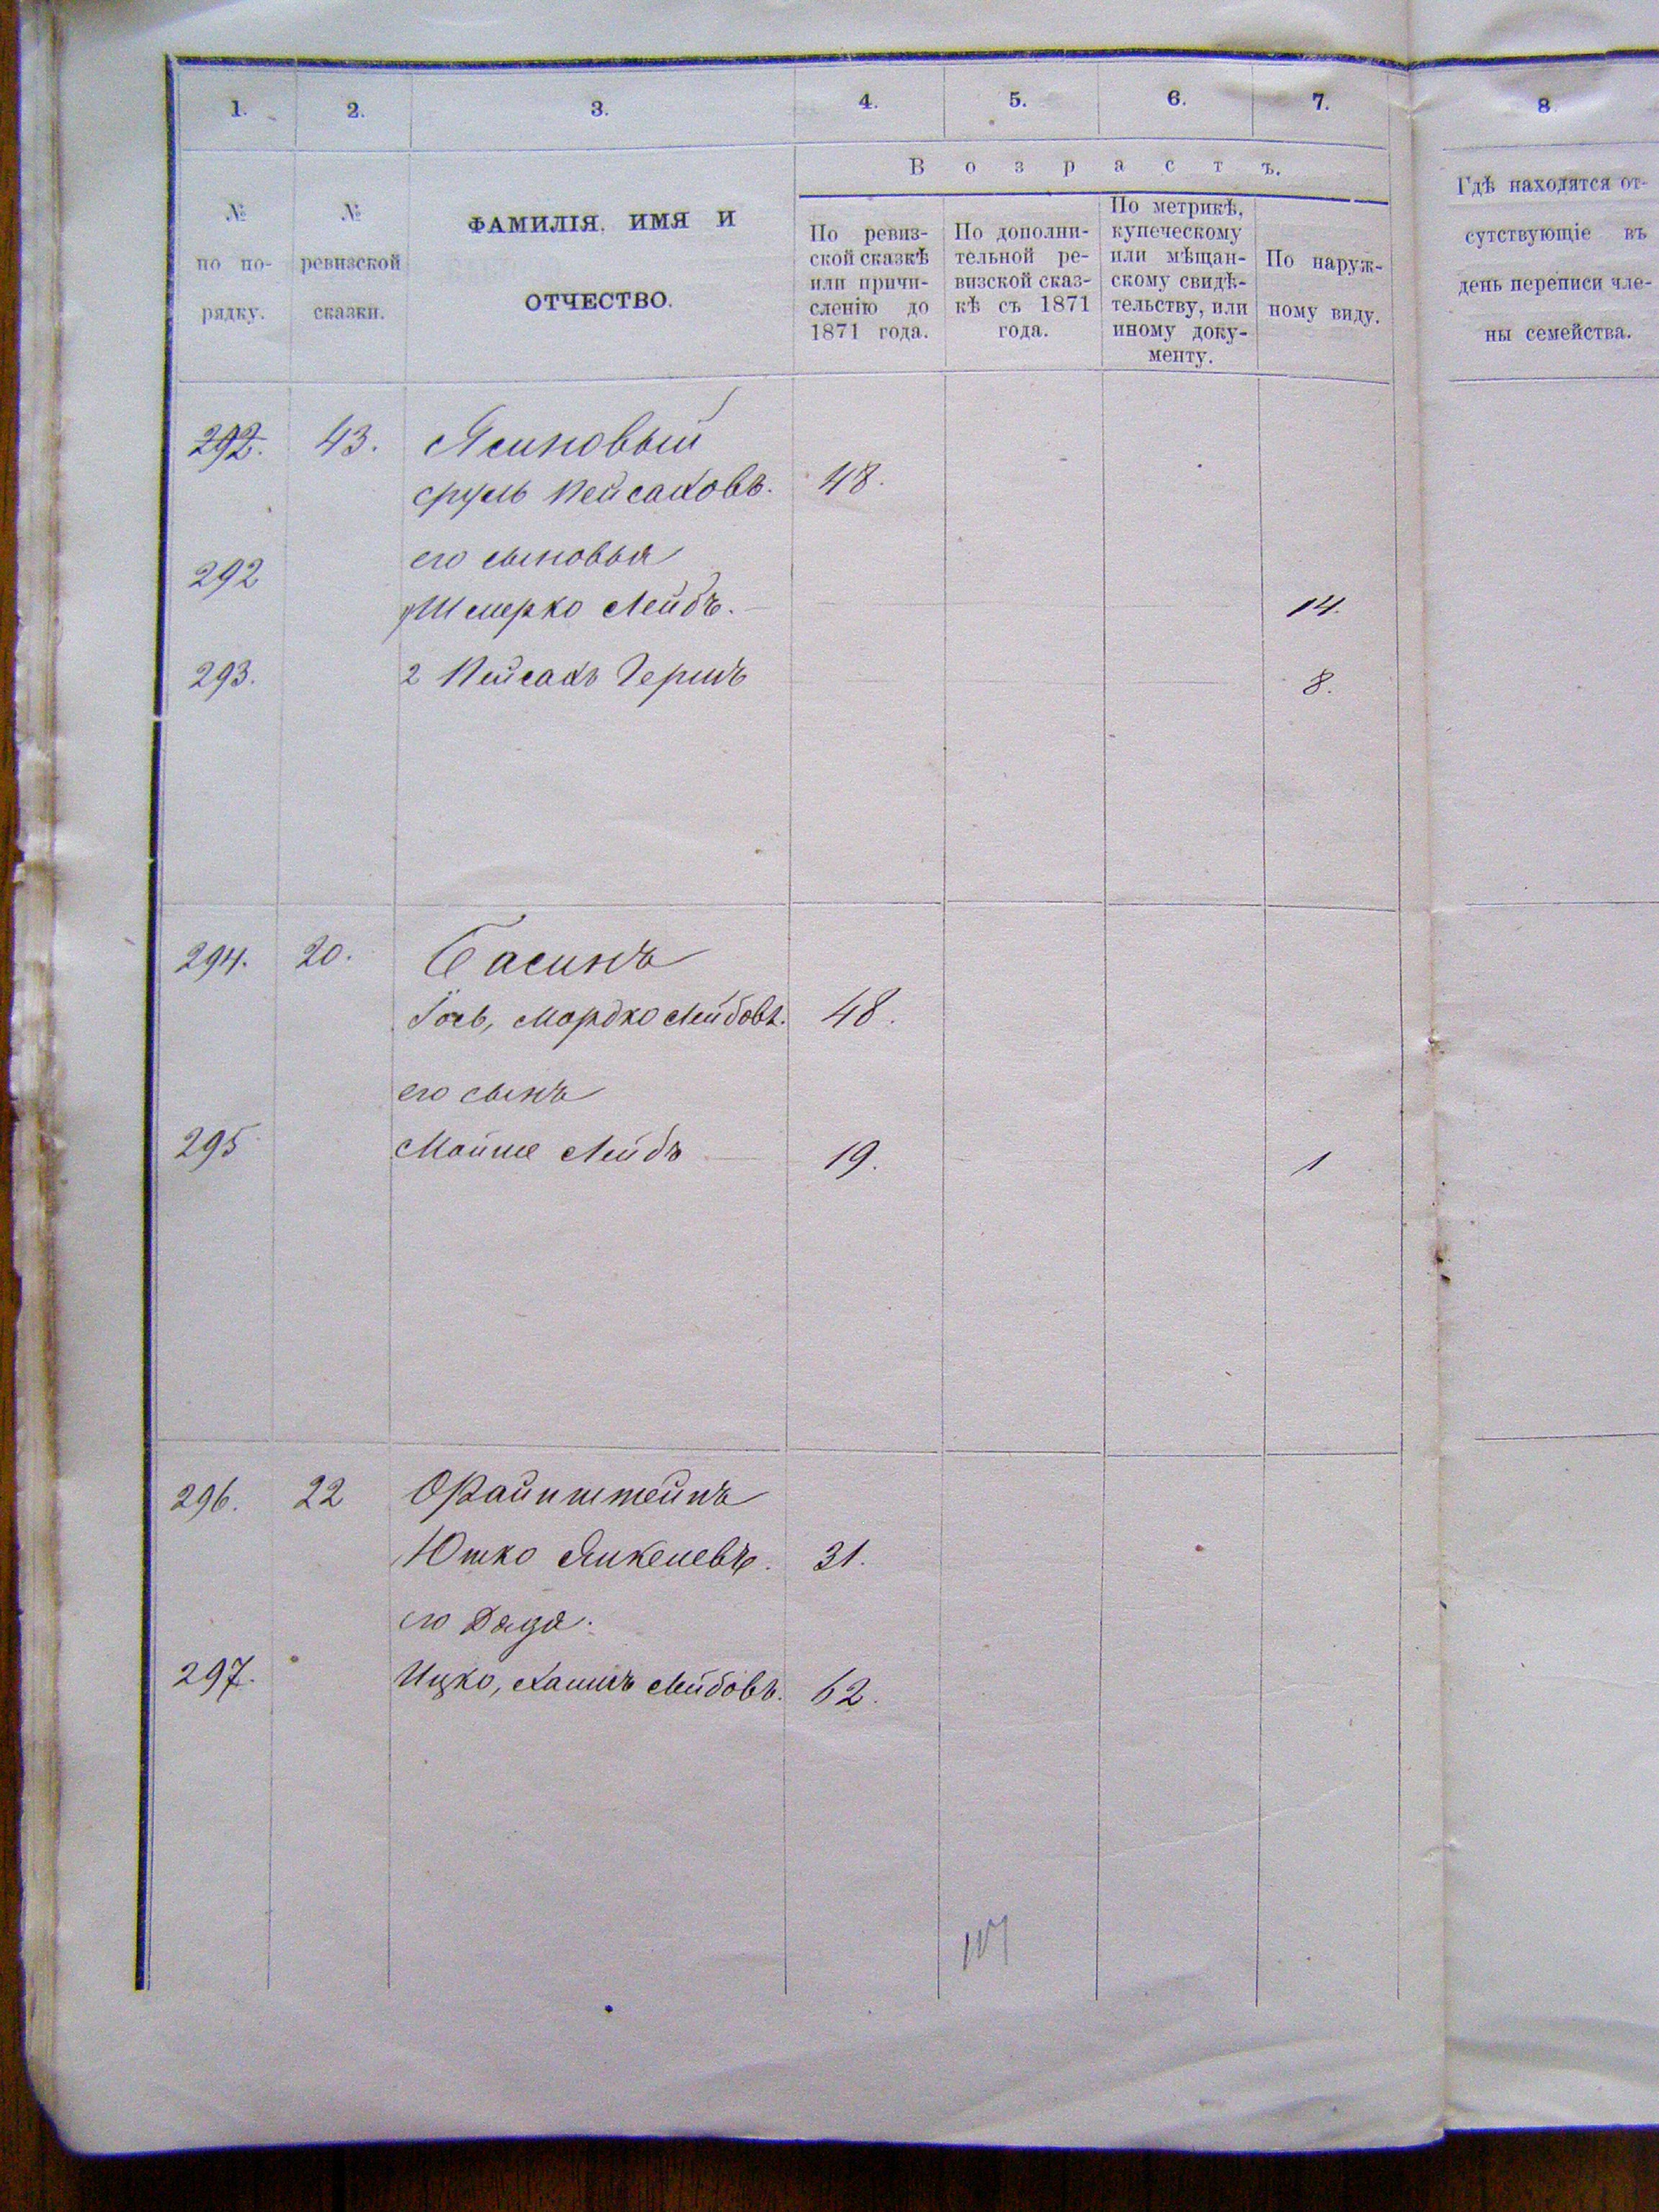 1. 2. 3. 4. 5. 6. 7. 8
№ по по-рядку.
№ ревизской сказки.
ФАМИЛІЯ, ИМЯ И ОТЧЕСТВО.
Возрастъ.
По ревиз-
ской сказкѣ
или причи-
сленію до
1871 года.
По дополни-
тельной ре-
визской сказ-
кѣ съ 1871
года.
По метрикѣ,
купеческому
или мѣщан-
скому свидѣ-
тельству, или
иному доку-
менту.
По наруж-
ному виду.
Гдѣ находятся от-
сутствующіе въ
день переписи чле-
ны семейства.
292. 43. Ясиновый
Сруль Пейсаховъ. 48.
его сыновья
292 1 Шмерко Лейбъ. 14.
293. 2 Пейсахъ Гершъ 8.
294. 20. Басинъ
Іось, Мордко Лейбовъ. 48.
его сынъ
295 Мойше Лейбъ 19. 1
296. 22 Файнштейнъ
Юшко Янкелевъ. 31.
его дядя.
297. Ицко, Хаимъ Лейбовъ. 62.